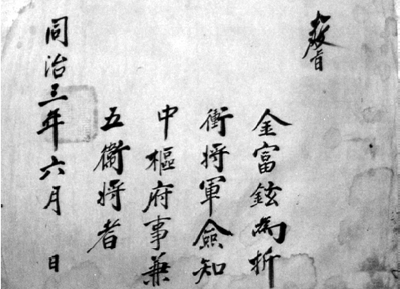 敎旨
金富鉉爲折
衝將軍僉知
中樞府事兼
五衛將者
同治三年六月 日